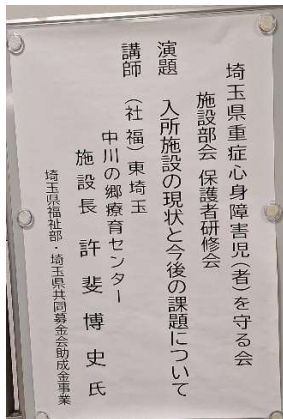 埼玉県重症心身障害児(者)を守る会
施設部会 保護者研修会
演題 入所施設の現状と今後の課題について
講師 (社福)東埼玉
中川の郷療育センター
施設長 許斐博史氏
埼玉県福祉部・埼玉県共同募金会助成金事業